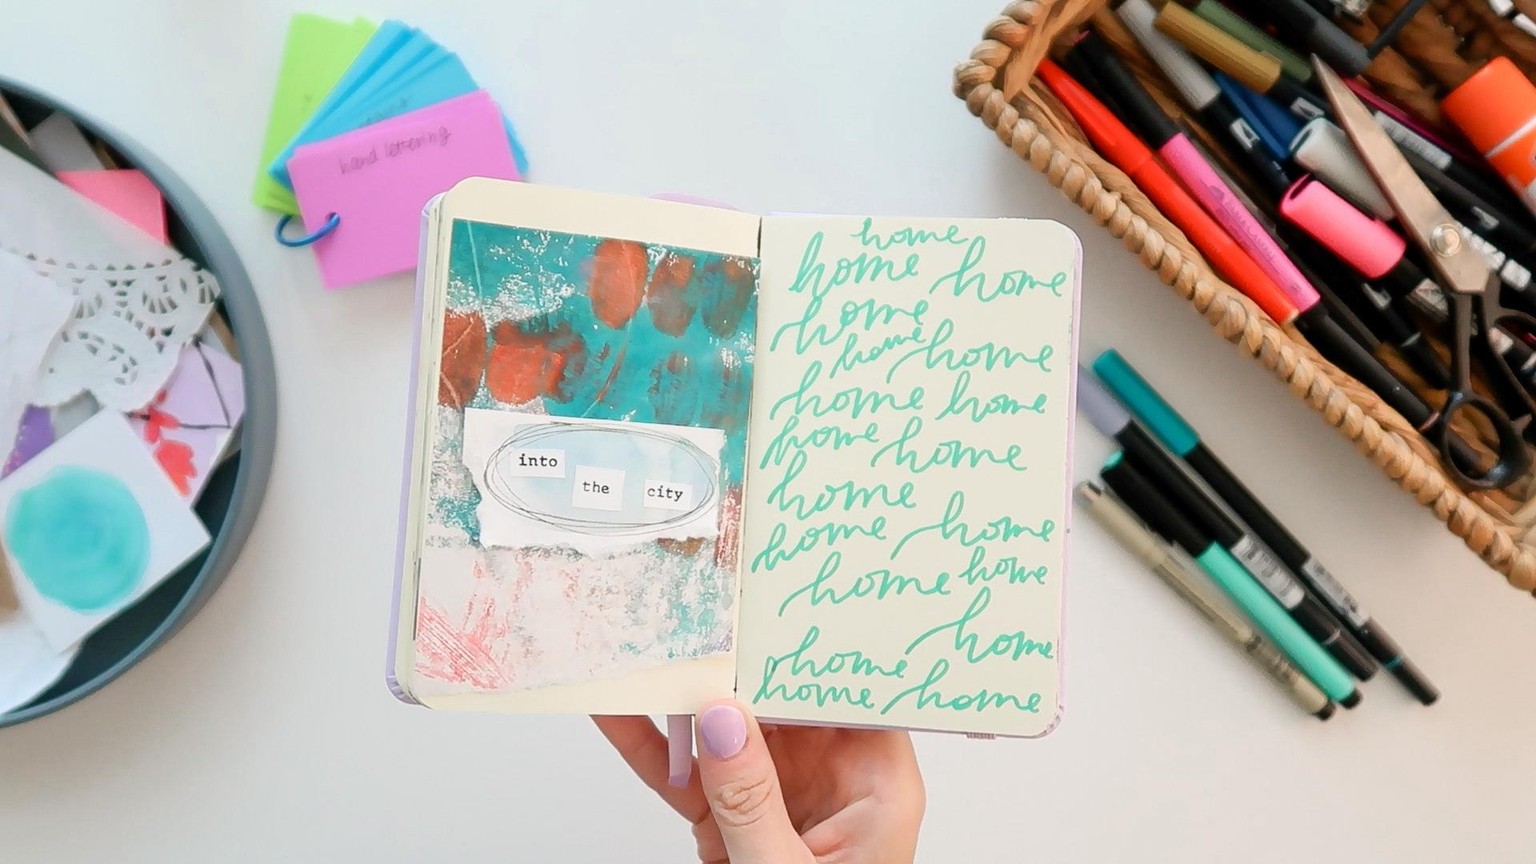 hand lettering
into
the
city
home
home home
home
home home
home home
home home
home
home home
home home
home
home
home home